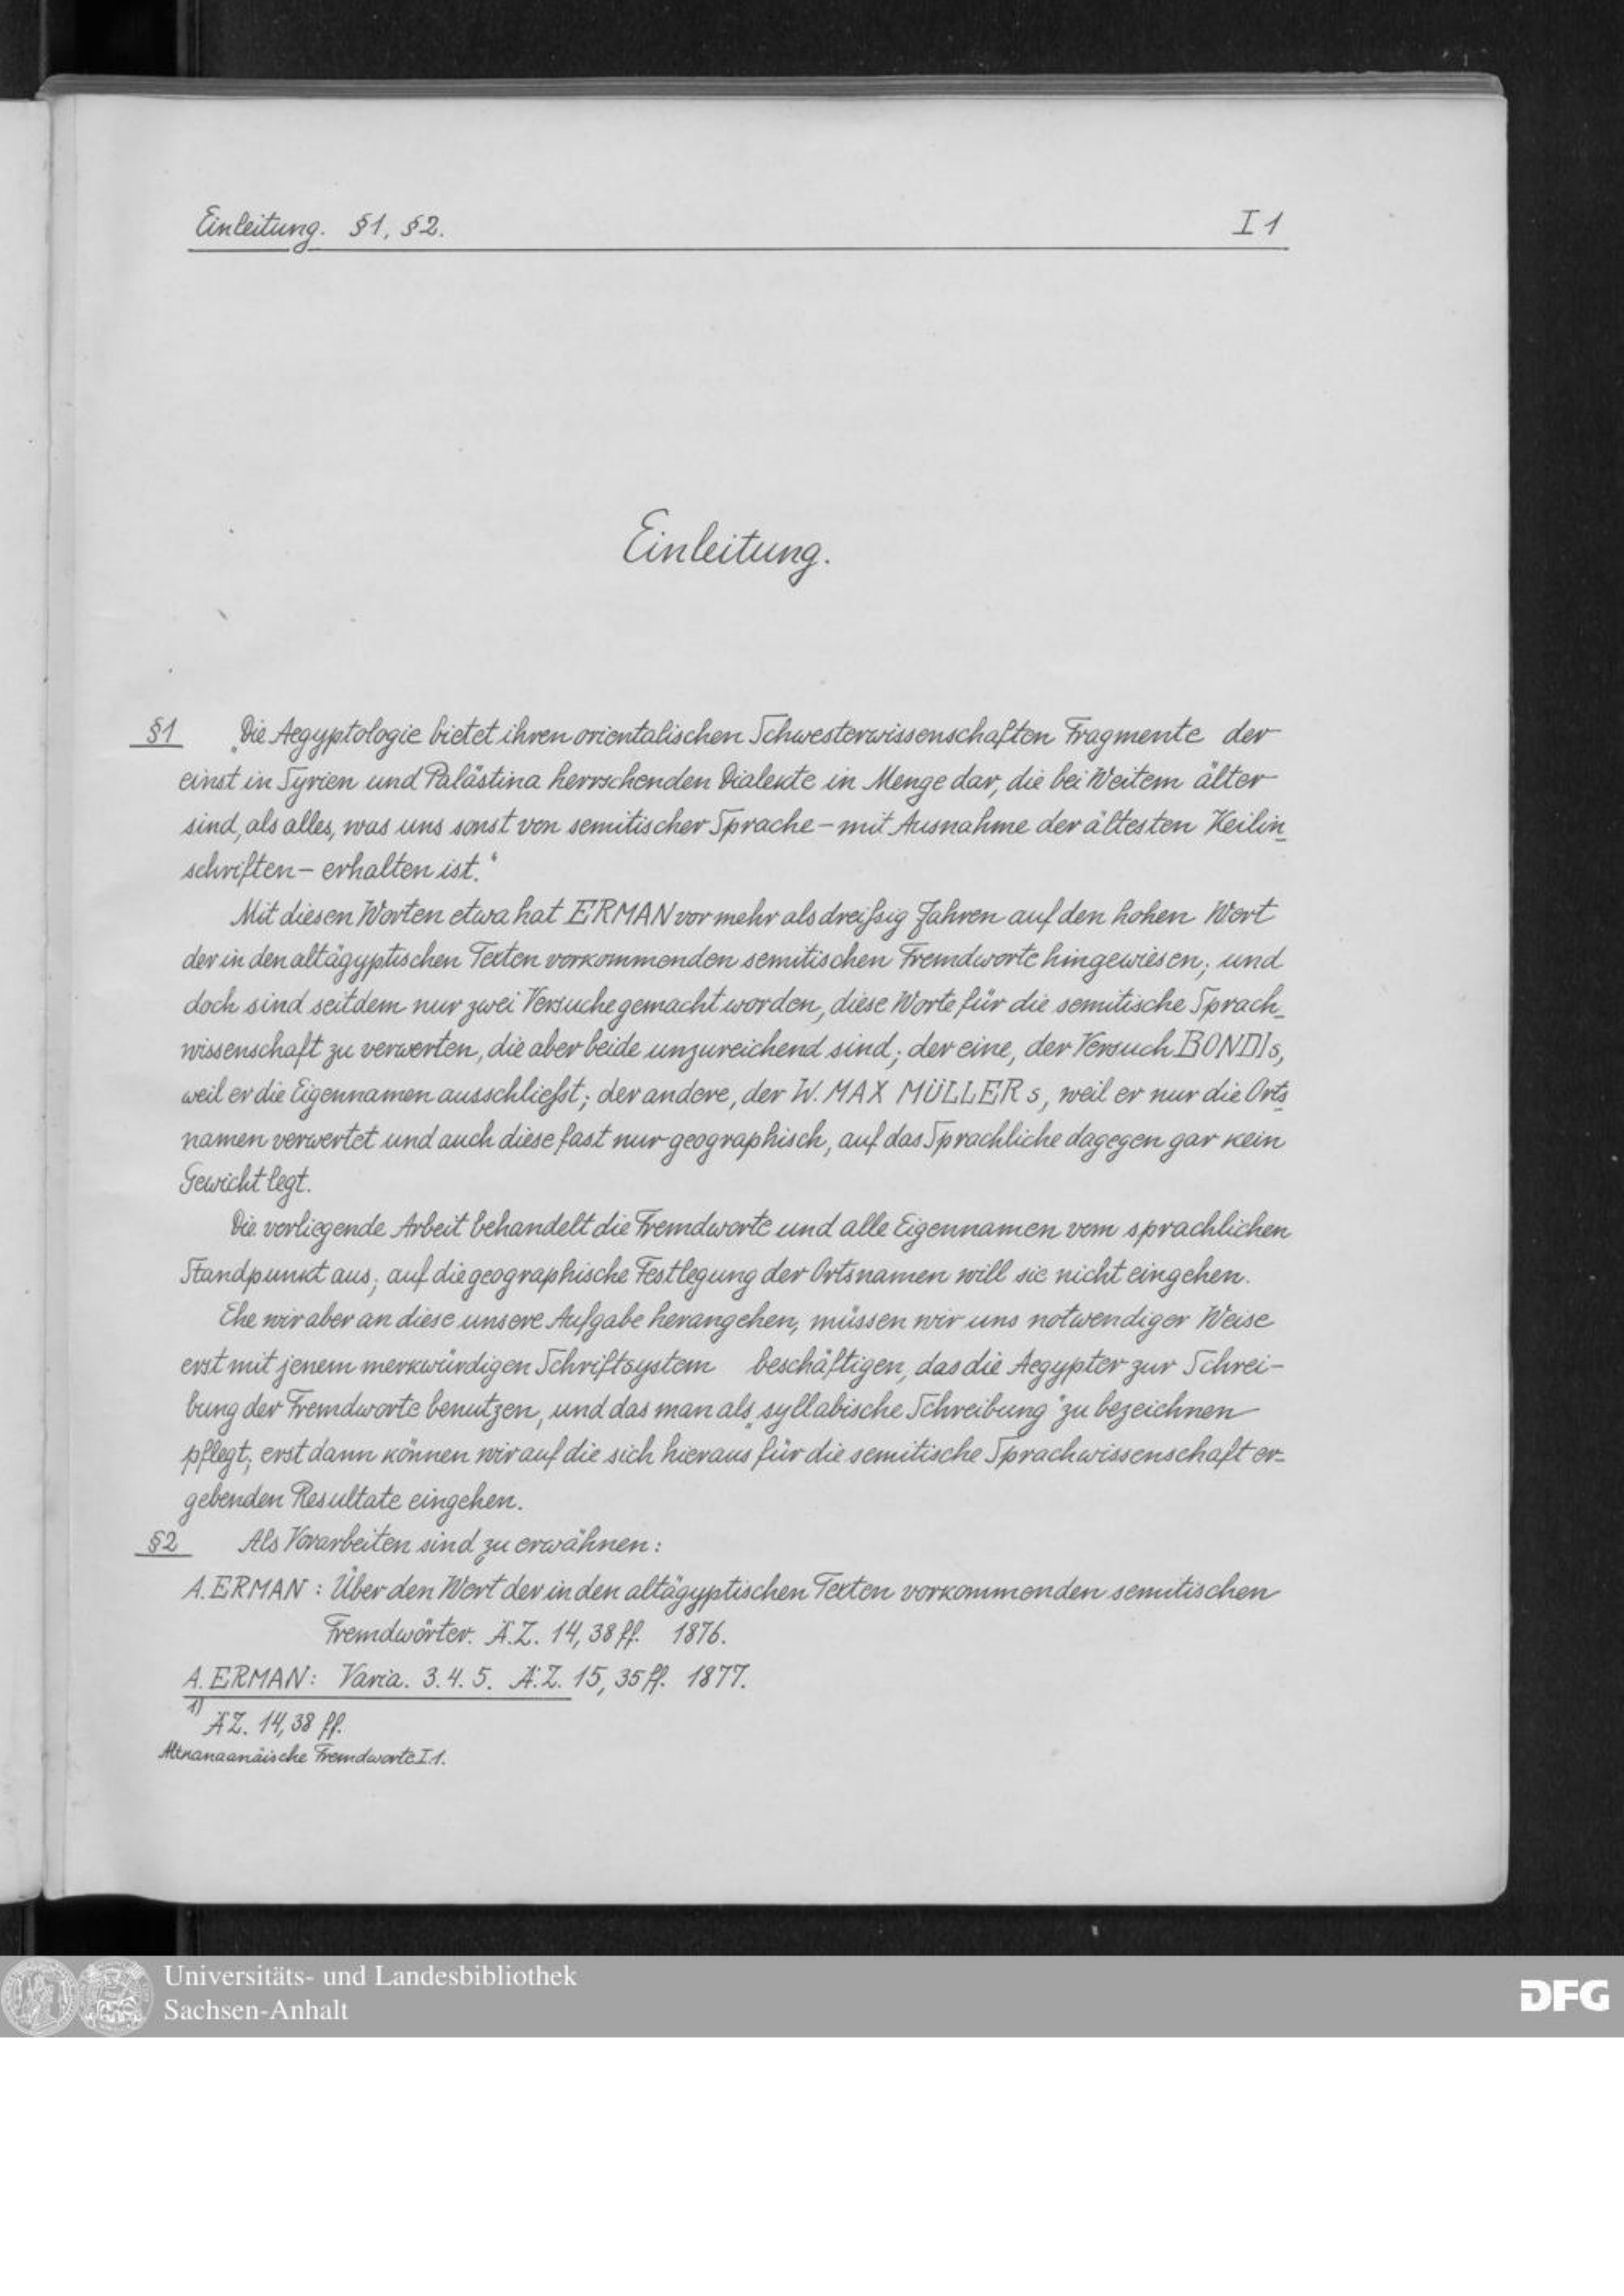 Einleitung. §1, §2. I 1
Einleitung.
§1 „Die Aegyptologie bietet ihren orientalischen Schwesterwissenschaften Fragmente der
einst in Syrien und Palästina herrschenden Dialekte in Menge dar, die bei Weitem älter
sind, als alles, was uns sonst von semitischer Sprache – mit Ausnahme der ältesten Keilin-
schriften – erhalten ist."
Mit diesen Worten etwa hat ERMAN vor mehr als dreißig Jahren auf den hohen Wert
der in den altägyptischen Texten vorkommenden semitischen Fremdworte hingewiesen; und
doch sind seitdem nur zwei Versuche gemacht worden, diese Worte für die semitische Sprach-
wissenschaft zu verwerten, die aber beide unzureichend sind; der eine, der Versuch BONDIs,
weil er die Eigennamen ausschließt; der andere, der W. MAX MÜLLERs, weil er nur die Orts-
namen verwertet und auch diese fast nur geographisch, auf das Sprachliche dagegen gar kein
Gewicht legt.
Die vorliegende Arbeit behandelt die Fremdworte und alle Eigennamen vom sprachlichen
Standpunkt aus; auf die geographische Festlegung der Ortsnamen will sie nicht eingehen.
Ehe wir aber an diese unsere Aufgabe herangehen, müssen wir uns notwendiger Weise
erst mit jenem merkwürdigen Schriftsystem beschäftigen, das die Aegypter zur Schrei-
bung der Fremdworte benutzen, und das man als „syllabische Schreibung" zu bezeichnen
pflegt; erst dann können wir auf die sich hieraus für die semitische Sprachwissenschaft er-
gebenden Resultate eingehen.
§2 Als Vorarbeiten sind zu erwähnen:
A. ERMAN: Über den Wert der in den altägyptischen Texten vorkommenden semitischen
Fremdwörter. Ä.Z. 14, 38 ff. 1876.
A. ERMAN: Varia. 3. 4. 5. Ä.Z. 15, 35 ff. 1877.
1) ÄZ. 14, 38 ff.
Altkanaanäische Fremdworte I. 1.
Universitäts- und Landesbibliothek
Sachsen-Anhalt
DFG